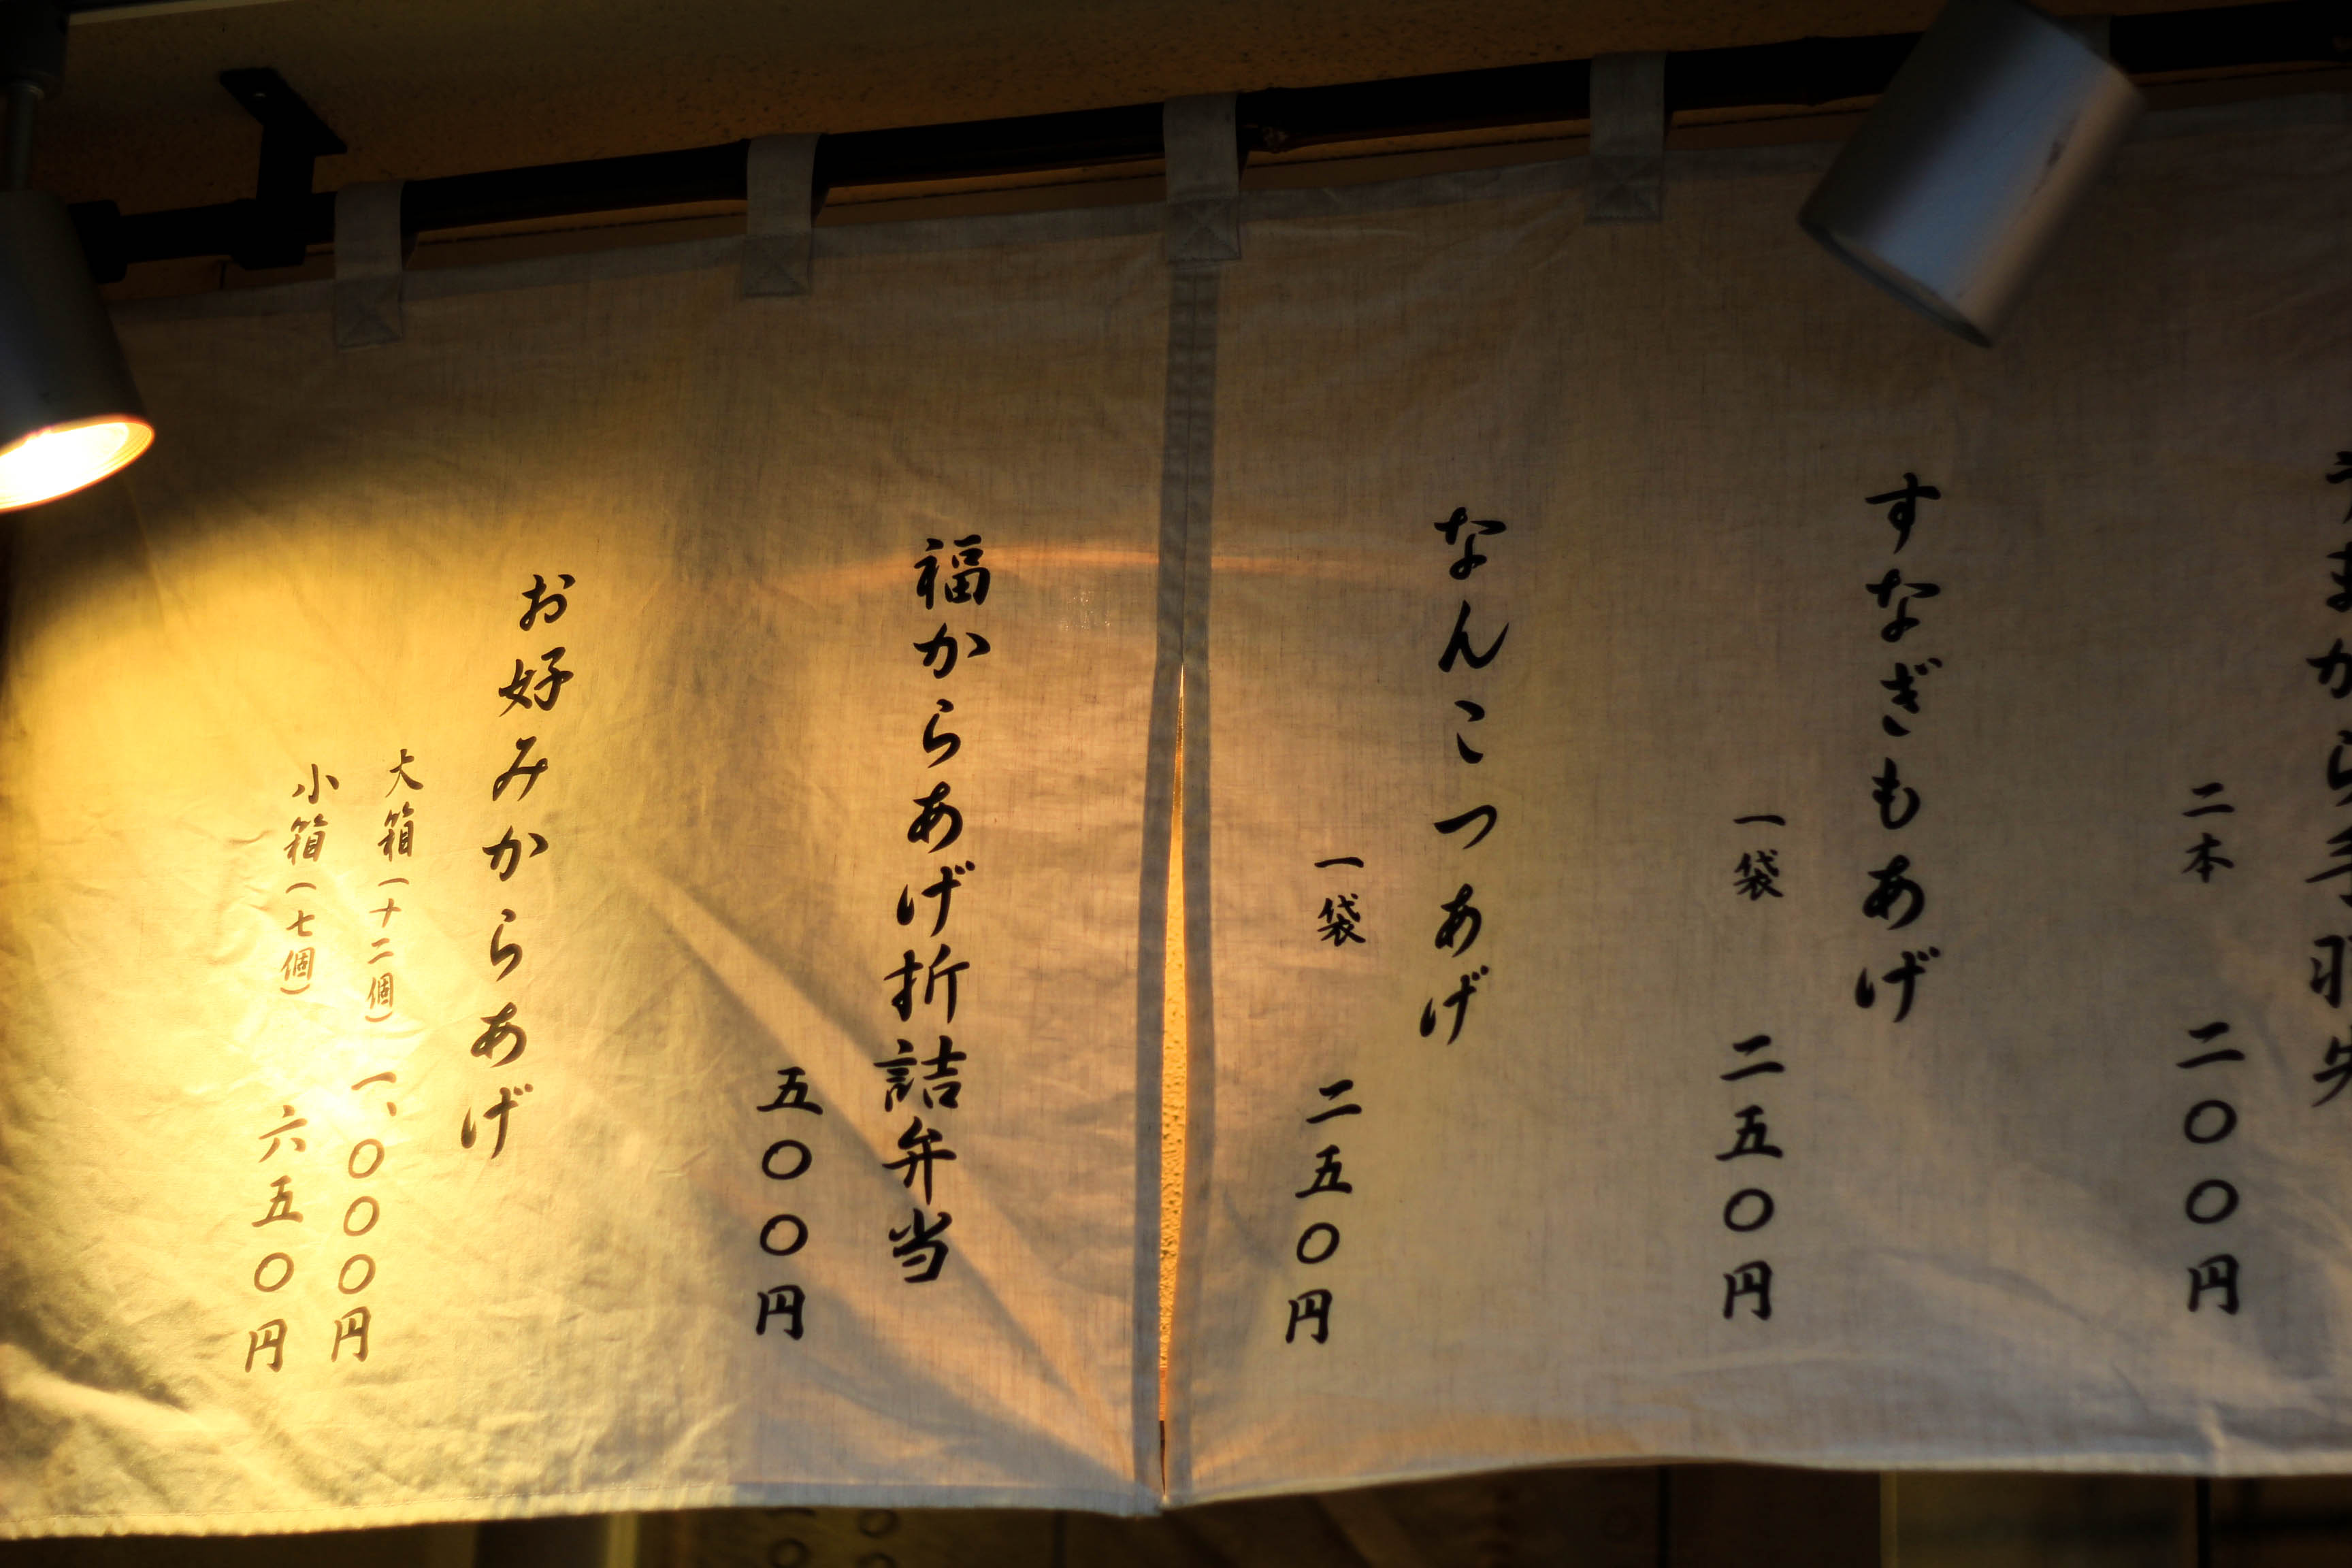 うまから手羽先
二本 二〇〇円
すなぎもあげ
一袋 二五〇円
なんこつあげ
一袋 二五〇円
福からあげ折詰弁当
五〇〇円
お好みからあげ
大箱(十二個) 一、〇〇〇円
小箱(七個) 六五〇円